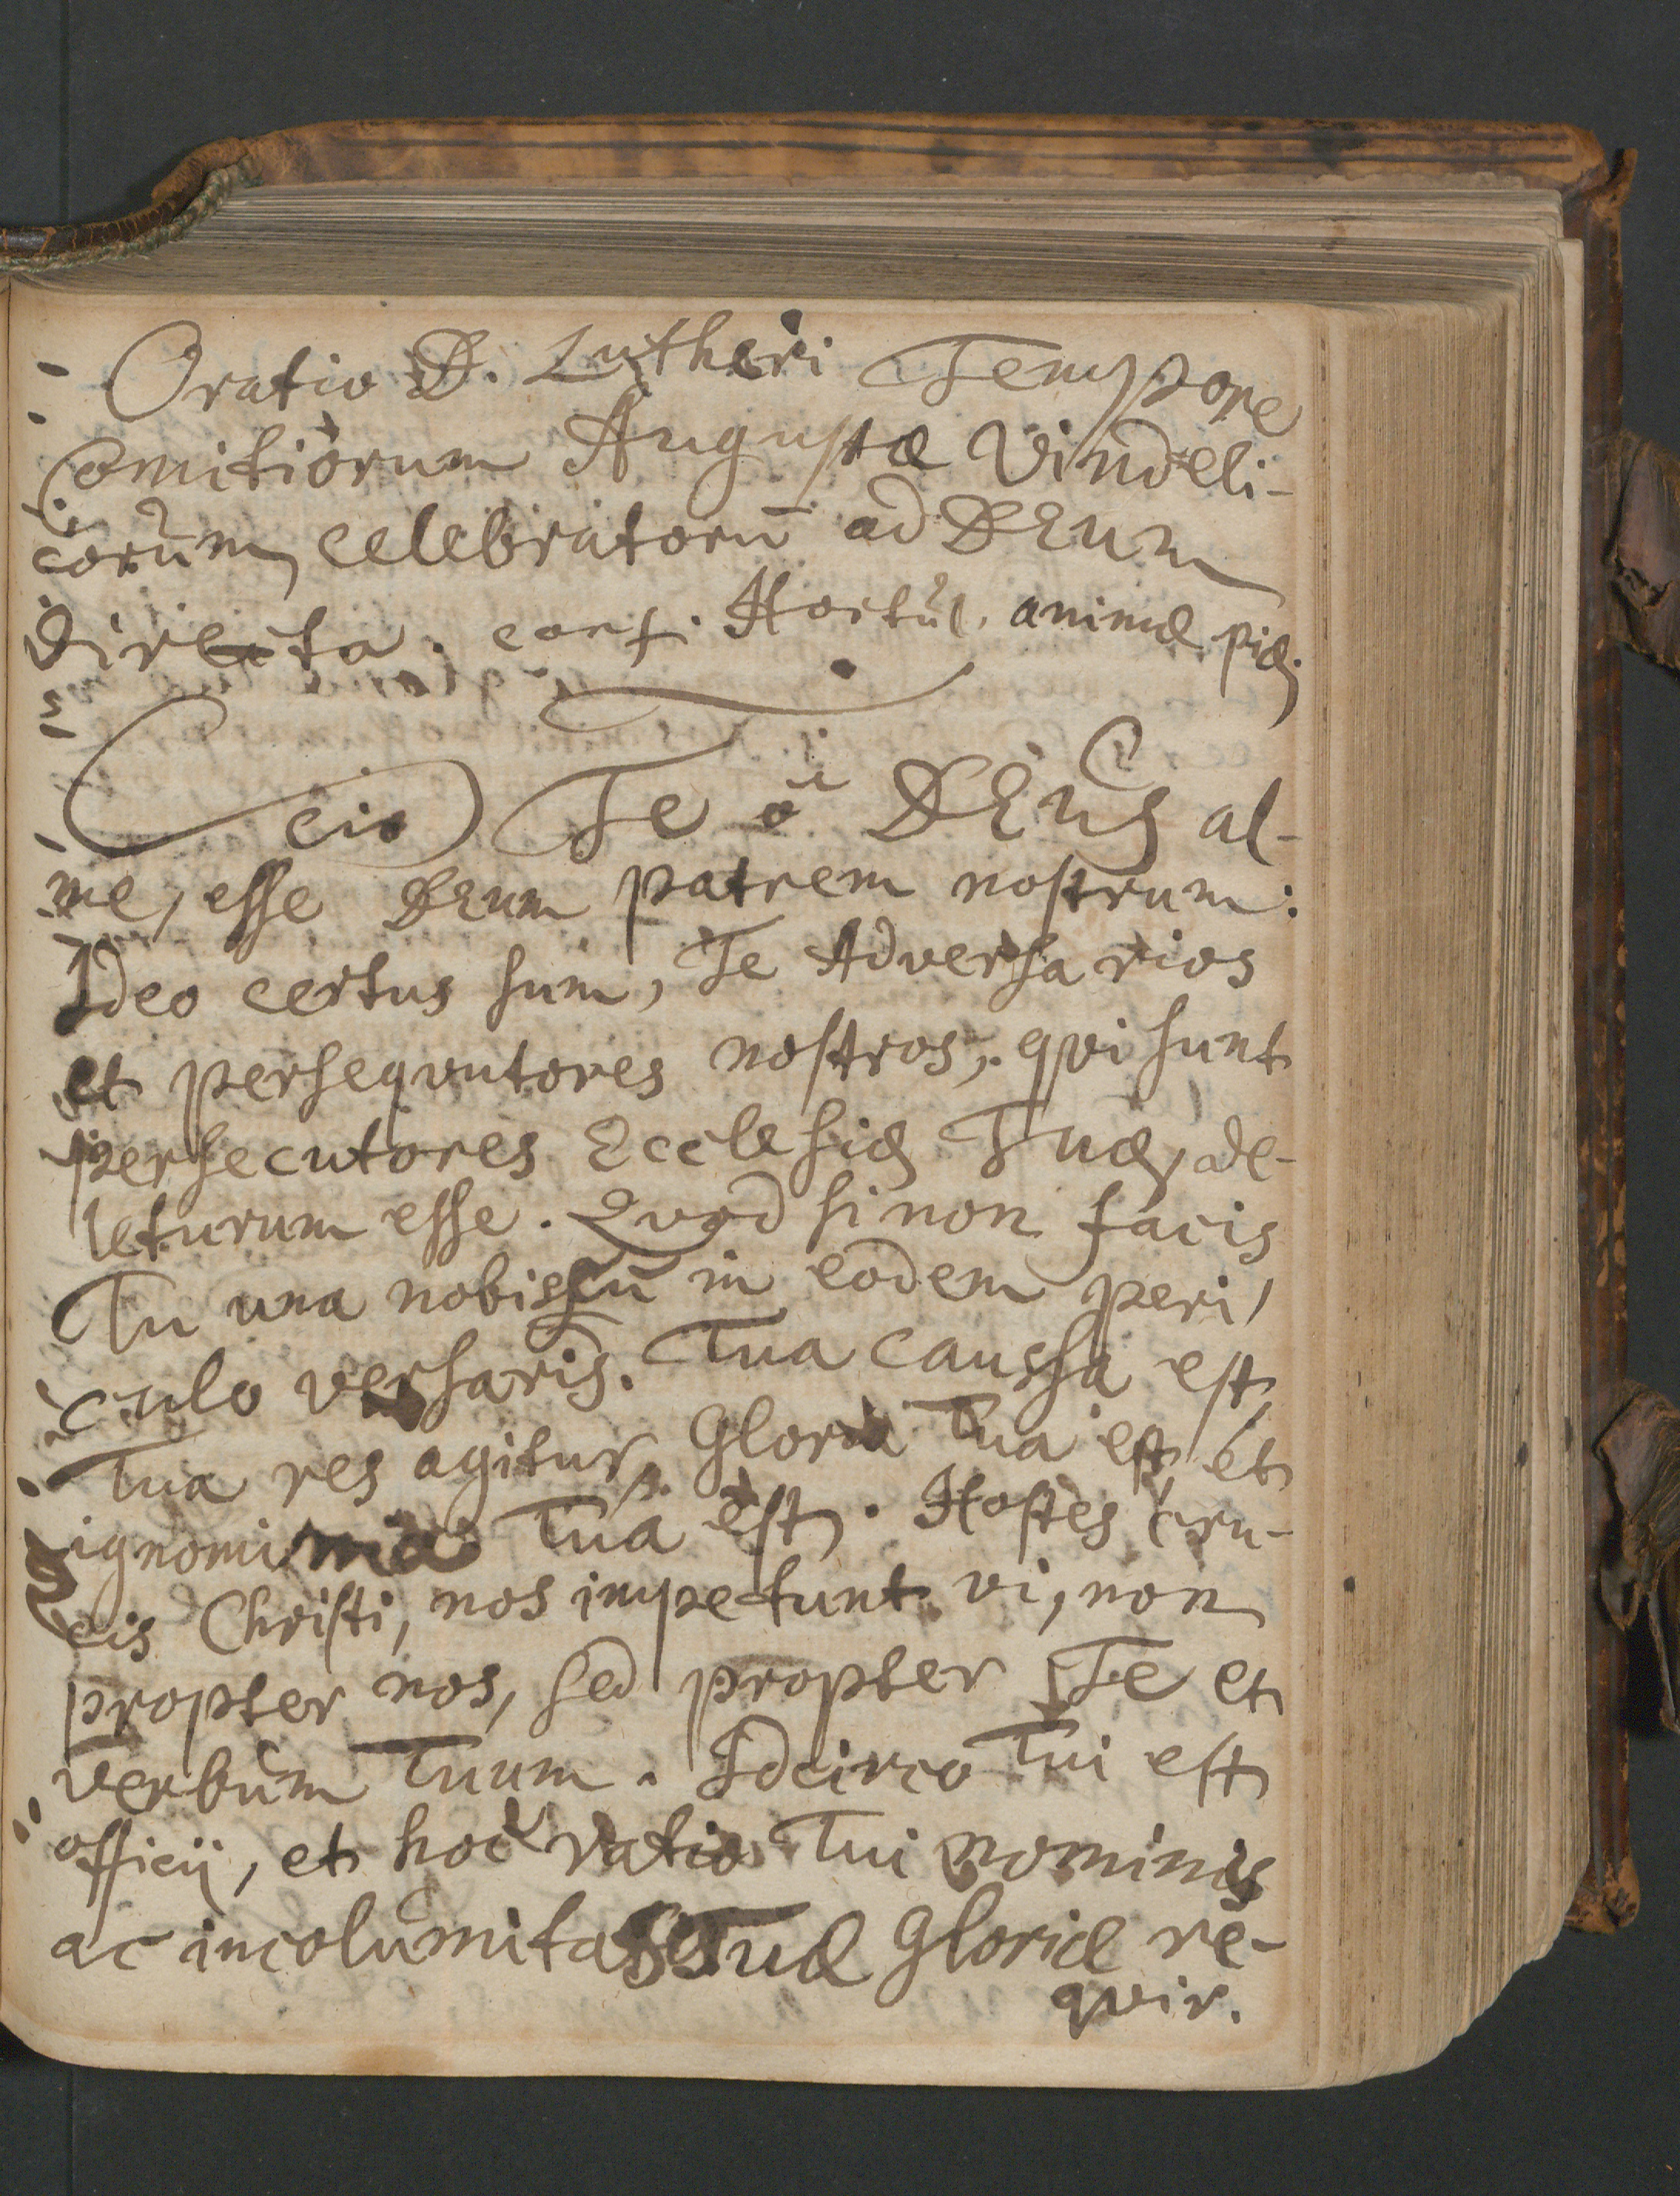 Oratio D. Lutheri Tempore
Comitiorum Augustæ Vindeli-
corum celebratorū ad DEum
directa. conf. Hortul. animæ piæ.
Scio Te ô DEUS al-
me, esse DEum patrem nostrum:
Ideo certus sum, Te Adversarios
et perseqvutores nostros, qvi sunt
persecutores Ecclesiæ Tuæ, de-
leturum esse. Qvod si non facis
Tu una nobiscū in eodem peri-
culo versaris. Tua caussa est,
Tua res agitur, Gloria Tua est et
ignominia Tua est. Hostes cru-
cis Christi, nos impetunt vi, non
propter nos, sed propter Te et
verbum Tuum. Idcirco Tui est
officij, et hoc ratio Tui nominis
ac incolumitas Tuæ Gloriæ re-
qvir.